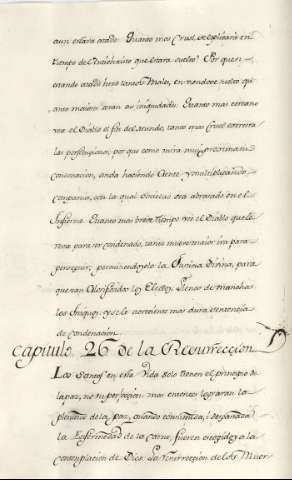 aun estara atado. Quanto mas Cruel se explicara en
tiempo de Antichristo que estara suelto? Porque si
estando atado hizo tantos Males, en viendose suelto qu
anto mayores seran sus iniquidades. Quanto mas cercano
vea el Diablo el fin del mundo, tanto mas Cruel exercera
las persecuciones, por que como mira muy cercana su
condenacion, anda haciendo Gente y multiplicando
compania, con la qual
Infierno. Quanto mas breve tiempo ve el Diablo que le
resta para ser condenado, tanto mayor ira para
perseguir; permitiendoselo la Justicia Divina, para
que sean Glorificados los Electos. Llenos de manchas
los Iniquos: y se le acreciente mas dura sentencia
de condenacion.
Capitulo 26 de la Resurreccion
Los Santos en esta vida solo tienen el principio de
la paz, no su perfeccion. mas entonces lograran la
plenitud de la paz, cuando
la Enfermedad de la carne, fueren a la
contemplacion de Dios. La resurreccion de los Muer